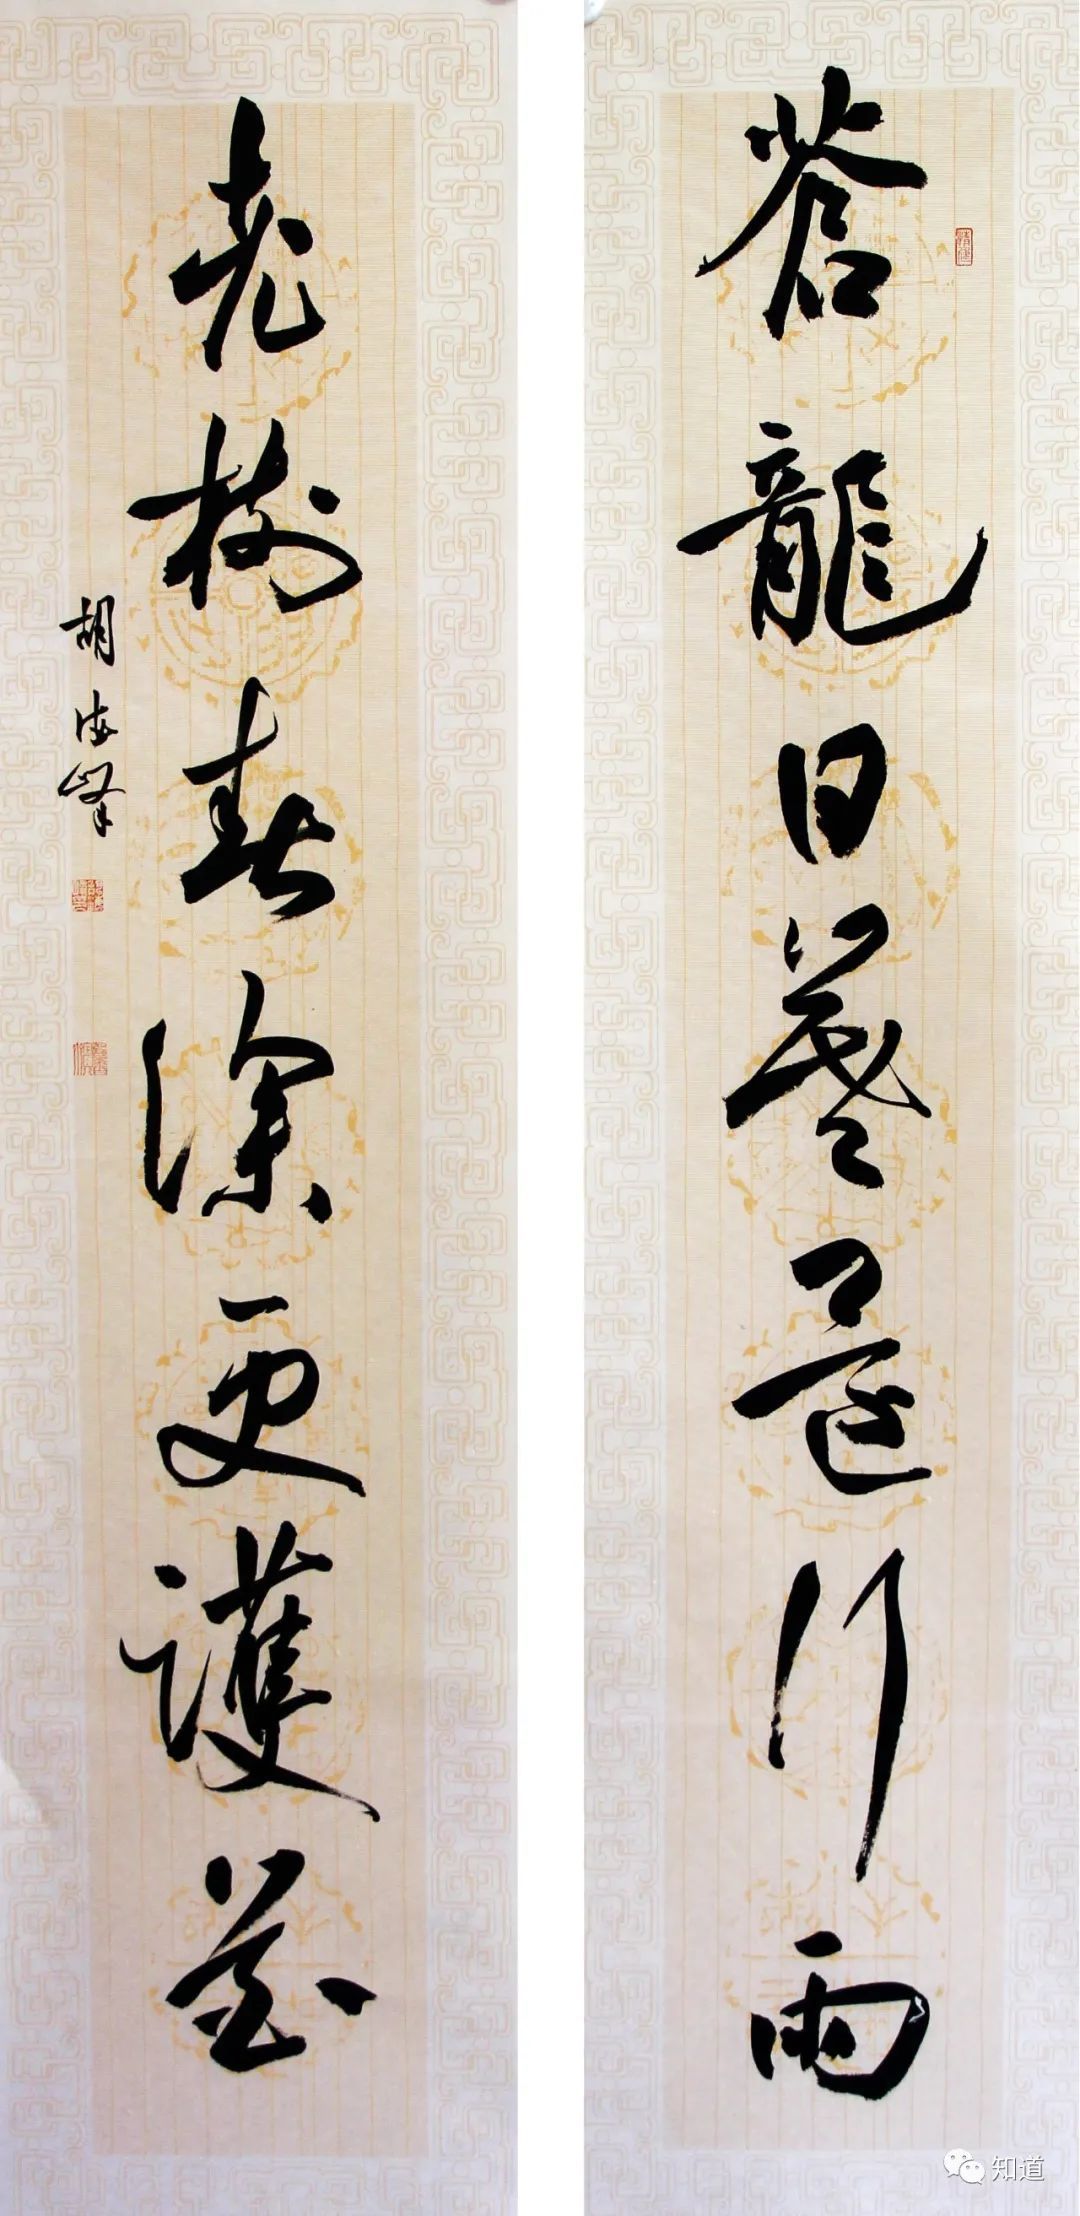 苍龍日暮還行雨
老樹春深更護花
胡海峰
知道